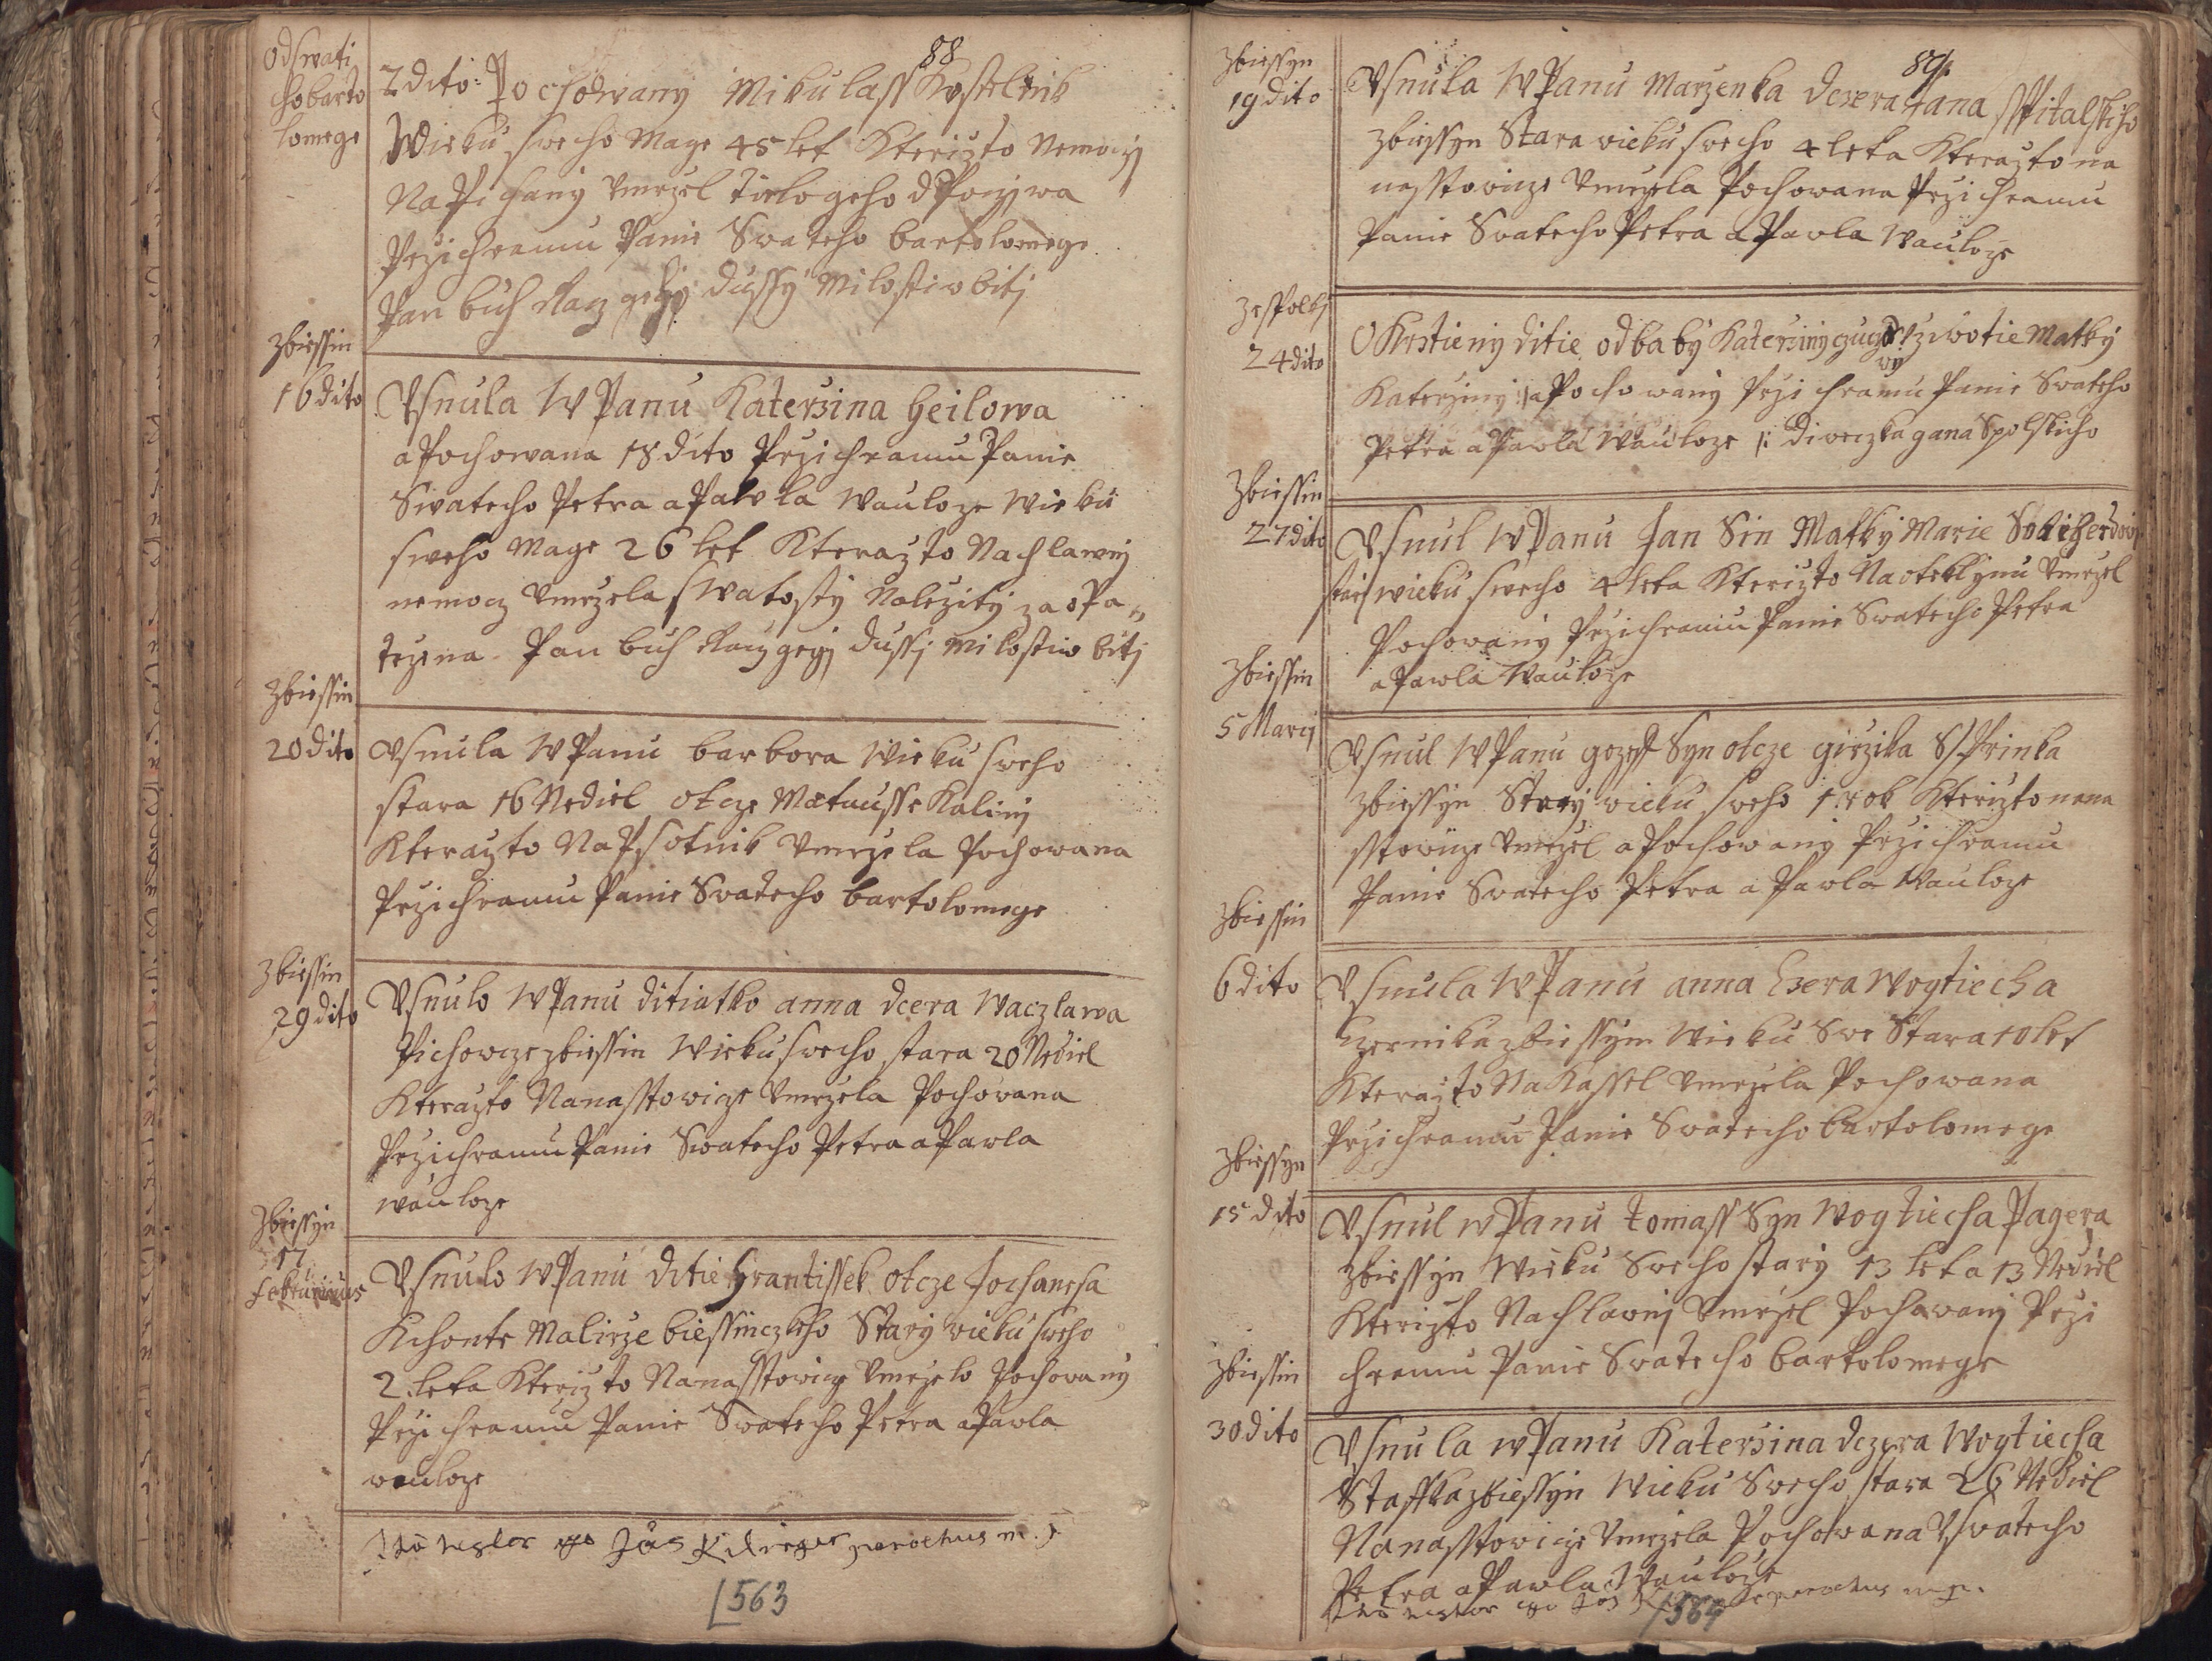 88
Odswati
hobarto
lomege
2 dito: Pochowany Mikulass Kostelnik
Wieku sweho Mage 45 let Kterizto Nemoczy
Na Pichany Vmrzel tielo geho dPoczywa
Przi chramu Panie Swateho bartolomege
Pan buh Racz gehy dussy Milostiw bitj
Zbiessin
16 dito
Vsnula W Panu Katerzina Heilowa
a Pochowana 18 dito Przi chramu Panie
Swateho Petra a Pawla Wauloze Wieku
sweho Mage 26 let Kterazto Na hlawnj
nemocz Vmrzela swatosty Nalezity zaoPa„
trzena. Pan buh Racz gegj dussj Milostiw bitj
Zbiessin
20 dito
Vsnula W Panu barbora Wieku sweho
stara 16 Nediel otcze Matausse Kaliny
Kterazto Na Psotnik Vmrzela Pochowana
Przi chramu Panie Swateho bartolomege
Zbiessin
29 dito
Vsnulo W Panu ditiatko anna dcera Waczlawa
Pichowcze zbiessin Wieku sweho stara 20 Nediel
Kterazto Nanasstowicze Vmrzela Pochowana
Przi chramu Panie Swateho Petra a Pawla
wauloze
Zbiessyn
17
februarius
Vsnulo W Panu ditie Frantissek otcze Johanesa
Kchonte Malirze biessinczkeho Stary wieku sweho
2 leta Kterizto Nanasstowicze Vmrzelo Pochowany
Przi chramu Panie Swateho Petra a Pawla
wauloze
Ita testor ego Joës parochus m. p.
563
89
Zbiessyn
19 dito
Vsnula W Panu Marzenka dcera Jana SsPitalskiho
Zbiessyn Stara wieku sweho 4 leta Kterazto na
nasstowicze Vmrzela Pochowana Przi chramu
Panie Swateho Petra a Pawla Wauloze
ZesPolky
24 dito
Okrstieny ditie od baby Katerziny ziwotie Matky
Katerziny :/ a Pochowany Przi chramu Panie Swateho
Petra a Pawla Wauloze /: diweczka gana Spolskiho
Zbiessin
27 dito
Vsnul W Panu Jan Sin Matky Marie
stary wieku sweho 4 leta Kterizto Na oteklynu Vmrzel
Pochowany Przi chramu Panie Swateho Petra
a Pawla Wauloze
Zbiessin
5 Marcy
Vsnul W Panu gozeff Syn otcze girzika SsPrinka
Zbiessyn Stary wieku sweho 1 rok Kterizto nana
sstowicze Vmrzel a Pochowany Przi chramu
Panie Swateho Petra a Pawla Wauloze
Zbiessin
6 dito
Vsnula W Panu anna Czera Wogtiecha
Czernika zbiessyn Wieku Swe Stara 10 let
Kterazto Na Kassel Vmrzela Pochowana
Przi chramu Panie Swateho bartolomege
Zbiessyn
15 dito
Vsnul w Panu tomass Syn Wogtiecha Pagera
Zbiessyn Wieku Sweho stary 13 let a 13 Nediel
Kterizto Na hlawnj Vmrzel Pochowanj Przi
chramu Panie Swateho bartolomege
Zbiessin
30 dito
Vsnula w Panu Katerzina dczera Wogtiecha
Staffka zbiessyn Wieku Sweho stara 26 Nediel
Nanasstowicze Vmrzela Pochowana V swateho
Petra a Pawla Wauloze
Ita testor ego Joës parochus m. p.
564